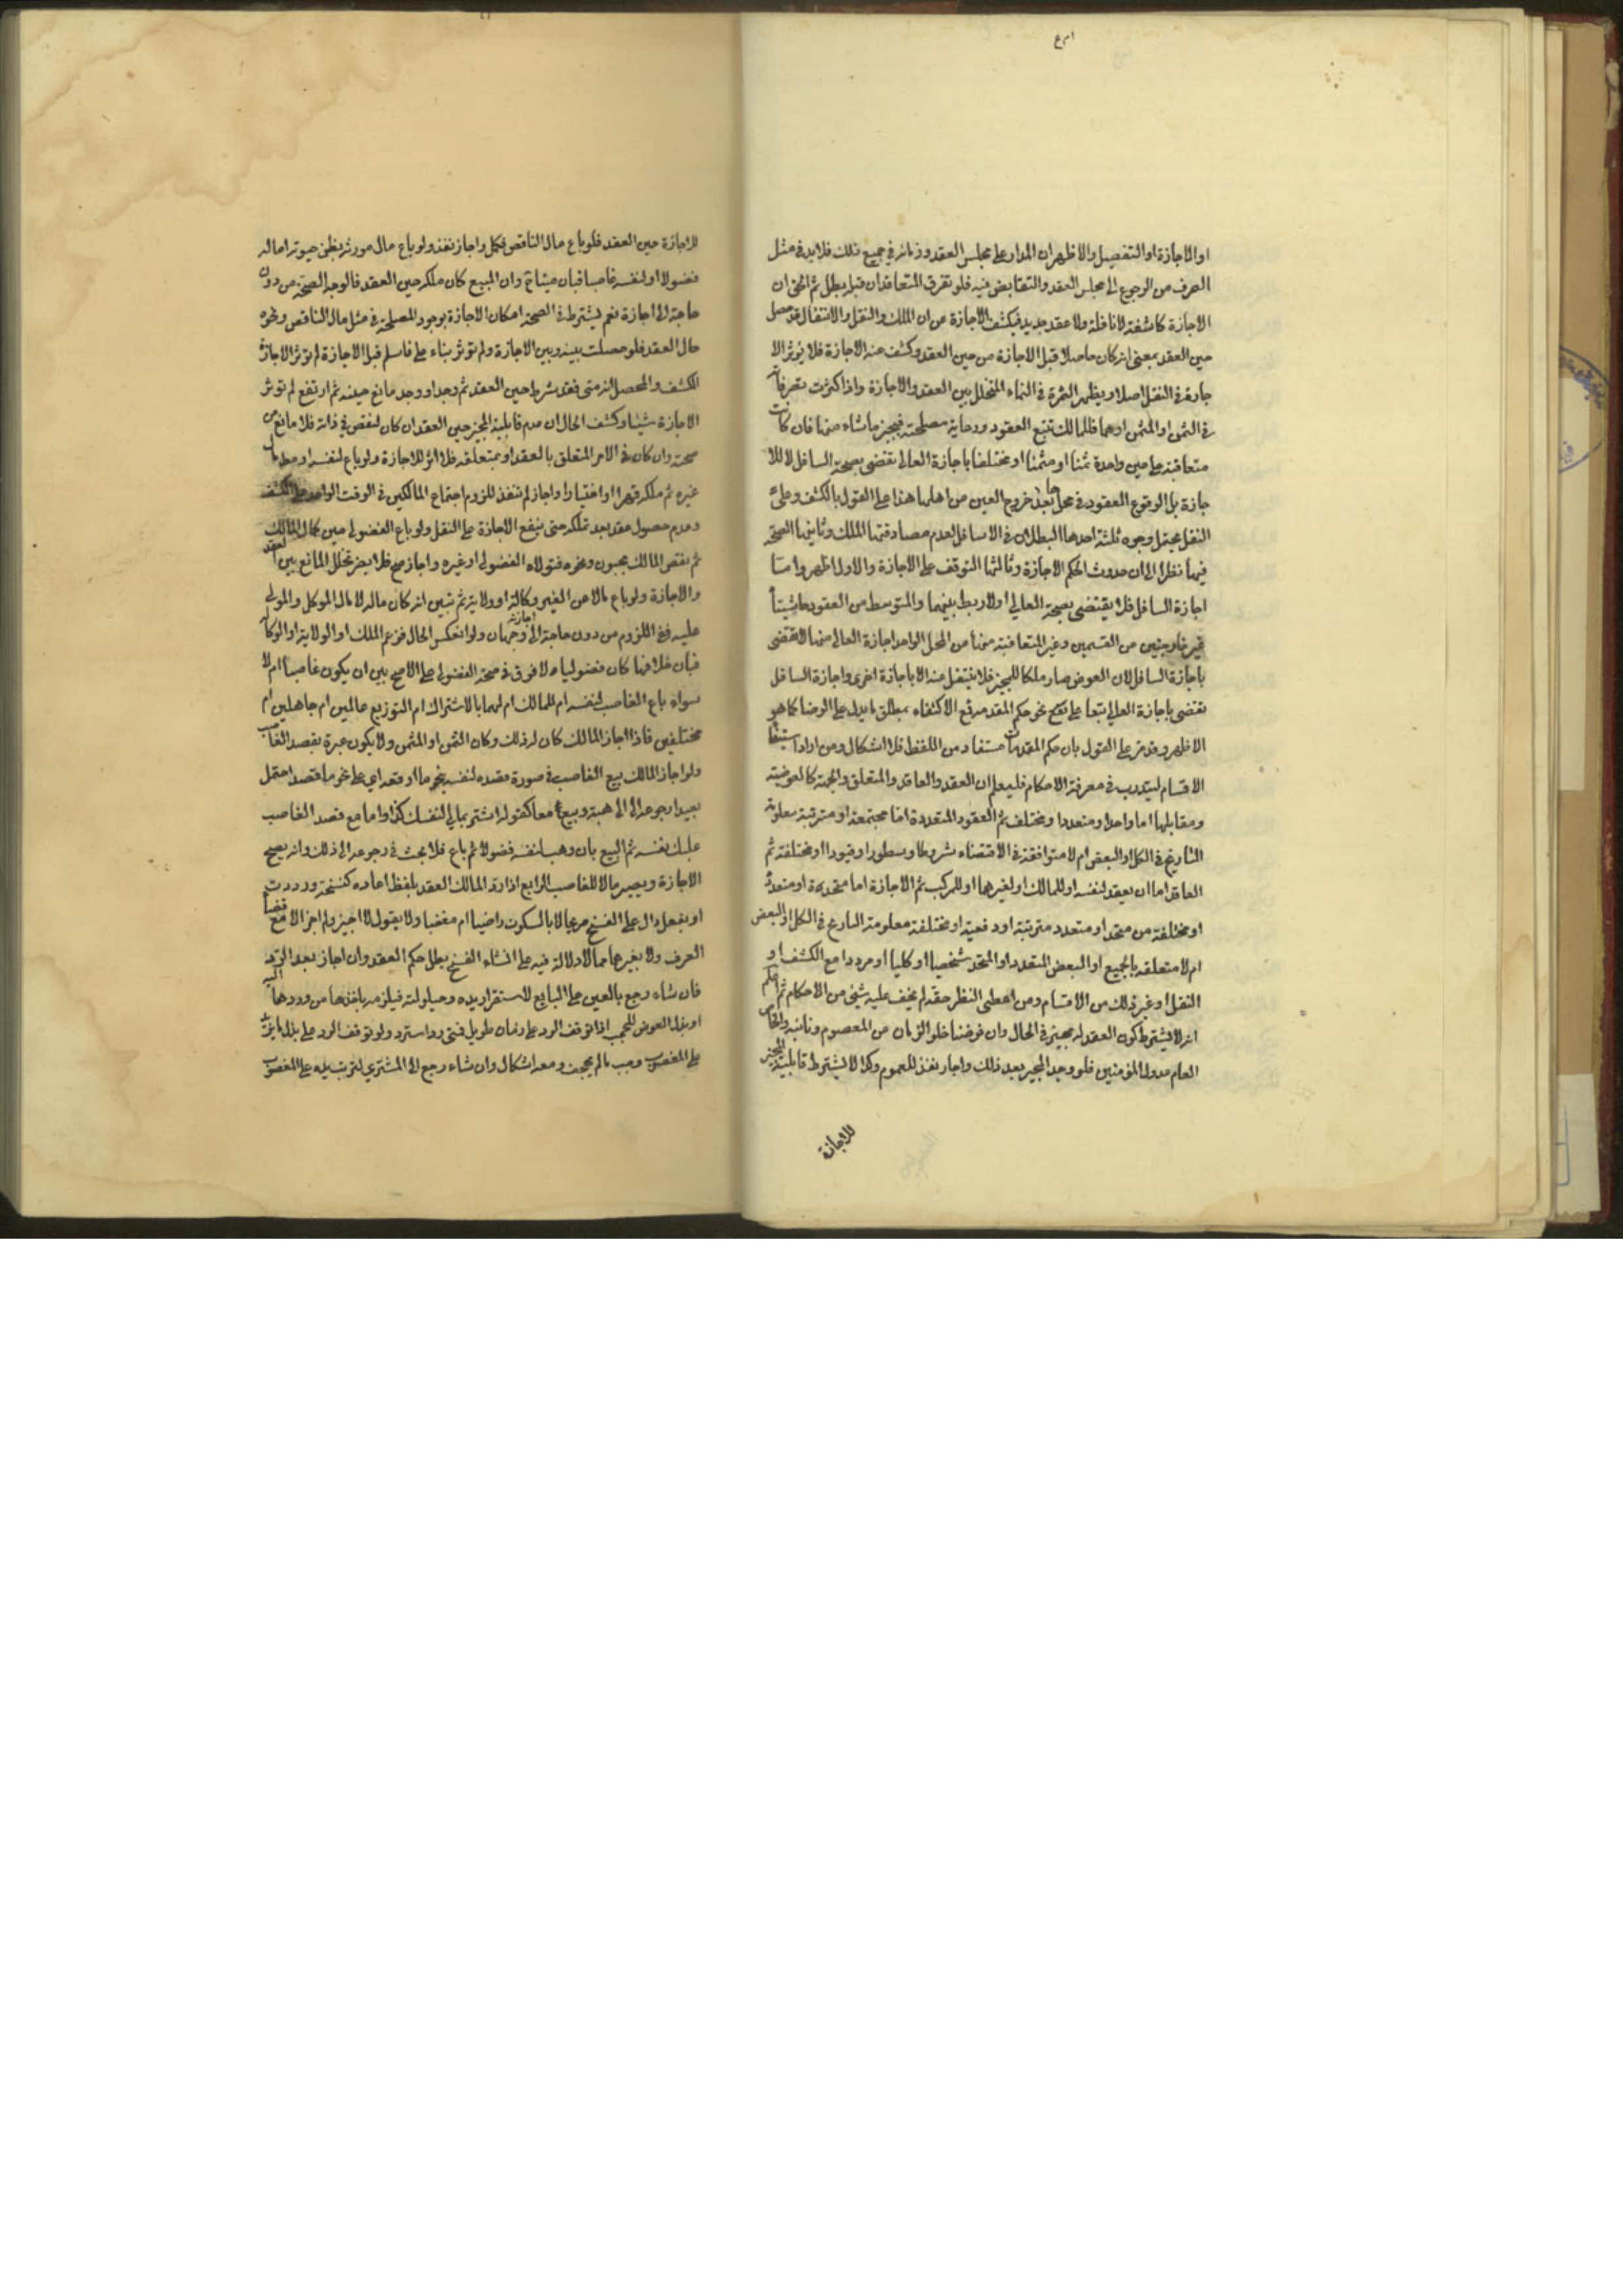 او الاجازة او التفصيل والاظهر ان المدار على مجلس العقد وزمانه في جميع ذلك فلابد في مثل
الصرف من الرجوع الى مجلس العقد والتقابض فيه فلو تفرق المتعاقدان قبله بطل ثم الحق ان
الاجازة كاشفة لا ناقلة ولا عقد جديد فتكشف الاجازة عن ان الملك والنقل والانتقال قد حصل
حين العقد بمعنى انه كان حاصلا قبل الاجازة من حين العقد وكشف عنه الاجازة فلا تؤثر الا
جازة في النقل اصلا ويظهر الثمرة في النماء المتخلل بين العقد والاجازة واذا كثرت تصرفاته
في الثمن او المثمن او هما فللمالك تتبع العقود ورعاية مصلحته فيجيز ما شاء منها فان كانت
متعاقبة على عين واحدة ثمنا او مثمنا او مختلفا باجازة العالي تقضي بصحة السافل لا للا
جازة بل لوقوع العقود في محلها بعد خروج العين من اهلها هذا على القول بالكشف وعلى
النقل يحتمل وجوه ثلثة احدها البطلان في الاسافل لعدم مصادفتها الملك وثانيها الصحة
فيها نظرا الى ان حدوث الحكم الاجازة وثالثها التوقف على الاجازة والاول اظهر واما
اجازة السافل فلا يقتضى بصحة العالي اولا ربط بينهما والمتوسط من العقود حاشيتاه
غير خارجتين من القسمين وغير المتعاقبة منها من المحل الواحد اجازة العالي منها لا تقضى
باجازة السافل لان العوض صار ملكا للمجيز فلا ينتقل عنه الا باجازة اخرى واجازة السافل
تقضى باجازة العالي تبعا على نحو حكم المقدمة مع الاكتفاء بمطلق ما يدل على الرضا كما هو
الاظهر وقد مر على القول بان حكم المقدمات مستفاد من اللفظ فلا اشكال ومن اراد استيفاء
الاقسام ليتدرب في معرفة الاحكام فليعلم ان العقد والعاقد والمتعلق والجهة كالعوضية
ومقابلها اما واحد او متعددا ومختلف ثم العقود المتعددة اما مجتمعة او مترتبة معلومة
التاريخ في الكل او البعض ام لا متوافقة في الاقتضاء شروطا وسطورا وقيودا او مختلفة ثم
العاقد اما ان يعقد لنفسه او للمالك او لغيرهما او للمركب ثم الاجازة اما متحدة او متعددة
او مختلفة من متحد او متعدد مترتبة او دفعية او مختلفة معلومة التاريخ في الكل او البعض
ام لا متعلقه بالجميع او البعض المتعدد او المتحد شخصيا او كليا او مرددا مع الكشف او
النقل او غير ذلك من الاقسام ومن اعطى النظر حقه لم يخف عليه شئ من الاحكام ثم اعلم
انه لا يشترط كون العقد له مجيز في الحال وان فرضنا خلو الزمان من المعصوم ونائبه والخاص
العام عدول المؤمنين فلو وجد المجيز بعد ذلك واجاز نفذ للعموم وكذا لا يشترط قابلية المجيز
للاجازة
للاجازة حين العقد فلو باع مال الناقص فكمل واجاز نفذ ولو باع مال مورثه بظن حيوته اما له
فضولا او لنفسه غاصبا فبان ميتا وان المبيع كان ملكه حين العقد فالوجه الصحة من دون
حاجة الى اجازة نعم يشترط في الصحة امكان الاجازة بوجود المصلحة في مثل مال الناقص ونحوه
حال العقد فلو حصلت بينه وبين الاجازة ولم تؤثر بناء على قبل الاجازة لم تؤثر الاجازة
الكشف والمحصل انه متى فقد شرط حين العقد ثم وجد او وجد مانع حينه ثم ارتفع لم تؤثر
الاجازة شيئا وكشف الحال ان عدم قابلية المجيز حين العقد ان كان لنقص في ذاته فلا مانع من
صحته وان كان في الامر المتعلق بالعقد او بمتعلقه فلا اثر للاجازة ولو باع لنفسه
غيره ثم ملكه قهرا او اختيارا واجاز لم تنفذ للزوم اجتماع المالكين في الوقت الواحد على الكشف
وعدم حصول عقد بعد تملكه حتى ينفع الاجازة على النقل ولو باع الفضولي حين كمال المالك
ثم نقص المالك بجنون ونحوه فتولاه الفضولي او غيره واجاز صح فلا يضر تخلل المانع بين العقد
والاجازة ولو باع مالا عن الغير وكالة او ولاية ثم تبين انه كان ماله لا مال الموكل والمولى
عليه ففي اللزوم من دون حاجة الى اجازته وجهان ولو انعكس الحال فزعم الملك او الولاية او الوكالة
فبان خلافها كان فضوليا ولا فرق في صحة الفضولي على الاصح بين ان يكون غاصبا ام لا
سواء باع الغاصب لنفسه ام للمالك ام لهما بالاشتراك ام التوزيع عالمين ام جاهلين ام
مختلفين فاذا اجاز المالك كان له ذلك وكان الثمن او المثمن ولا يكون عبرة بقصد الغاصب
ولو اجاز المالك بيع الغاصب في صورة قصده لنفسه بنحو ما اوقعه اي على نحو ما قصد احتمل
بعيدا رجوعه الى هبة وبيع معا كقوله اشتر بمالي لنفسك كذا واما مع قصد الغاصب
نفسه ثم البيع بان وهب لنفسه فضولا ثم باع فلا بحث في رجوعه الى ذلك وانه يصح
الاجازة ويصير مالا للغاصب الرابع اذا رد المالك العقد بلفظ افاده كفسخته ورددت
او بفعل دال على الفسخ صريحا لا بالسكوت راضيا ام مغضبا ولا بقول لا اجيز ولم اجز الا مع قضاء
العرف ولا بغيرها مما لا دلالة فيه على انشاء الفسخ بطل حكم العقد وان اجاز بعد الرد
فان شاء رجع بالعين على البايع لاستقرار يده وحيلولته فيلزمه باخذها من وردها اليه
او بذل العوض اذا توقف الرد على زمان طويل فمتى ردا استرد ولو توقف الرد على بذل
على المغصوب وجب ما لم يجحف ومعه اشكال وان شاء رجع الى المشتري لترتب يده على المغصوب